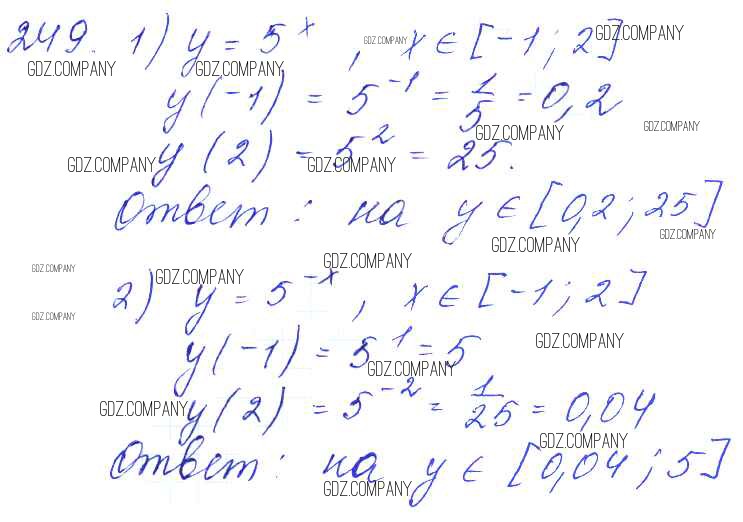 249. 1) y = 5^x, x ∈ [-1; 2]
GDZ.COMPANY GDZ.COMPANY GDZ.COMPANY GDZ.COMPANY
y(-1) = 5^-1 = 1/5 = 0,2
GDZ.COMPANY GDZ.COMPANY
y(2) = 5^2 = 25.
GDZ.COMPANY GDZ.COMPANY
Ответ: на y ∈ [0,2; 25]
GDZ.COMPANY GDZ.COMPANY
GDZ.COMPANY GDZ.COMPANY
2) y = 5^-x, x ∈ [-1; 2]
GDZ.COMPANY GDZ.COMPANY
y(-1) = 5^1 = 5
GDZ.COMPANY GDZ.COMPANY
y(2) = 5^-2 = 1/25 = 0,04
GDZ.COMPANY GDZ.COMPANY
Ответ: на y ∈ [0,04; 5]
GDZ.COMPANY